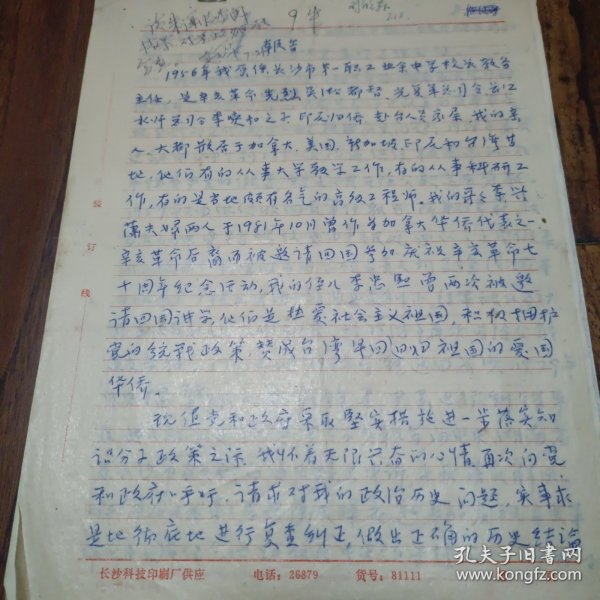 1956年我原任长沙市第一职工业余中学校长教导
主任，是辛亥革命先烈
水师总司令李燮和之子印尼归侨，赴台人员家属，我的亲
人、大都散居于加拿大、美国、新加坡、印尼和台湾等
地，他们有的从事大学教学工作，有的从事科研工
作，有的是当地颇有名气的高级工程师。我的
蘭夫婦两人于1981年10月曾作为加拿大华侨代表之一
辛亥革命后裔而被邀请回国参加庆祝辛亥革命七
十周年纪念活动，我的侄儿李忠曾两次被邀
请回国讲学他们是热爱社会主义祖国，积极拥护
党的统战政策，赞成台湾早回归祖国的爱国
华侨。
现值党和政府采取坚实措施进一步落实知
识分子政策之际，我怀着无限兴奋的心情再次向党
和政府呼吁，请求对我的政治历史问题，实事求
是地彻底地进行复查纠正，做出正确的历史结论
装
订
线
长沙科技印刷厂供应 电话：26879 货号：81111
孔夫子旧书网
www.kongfz.com